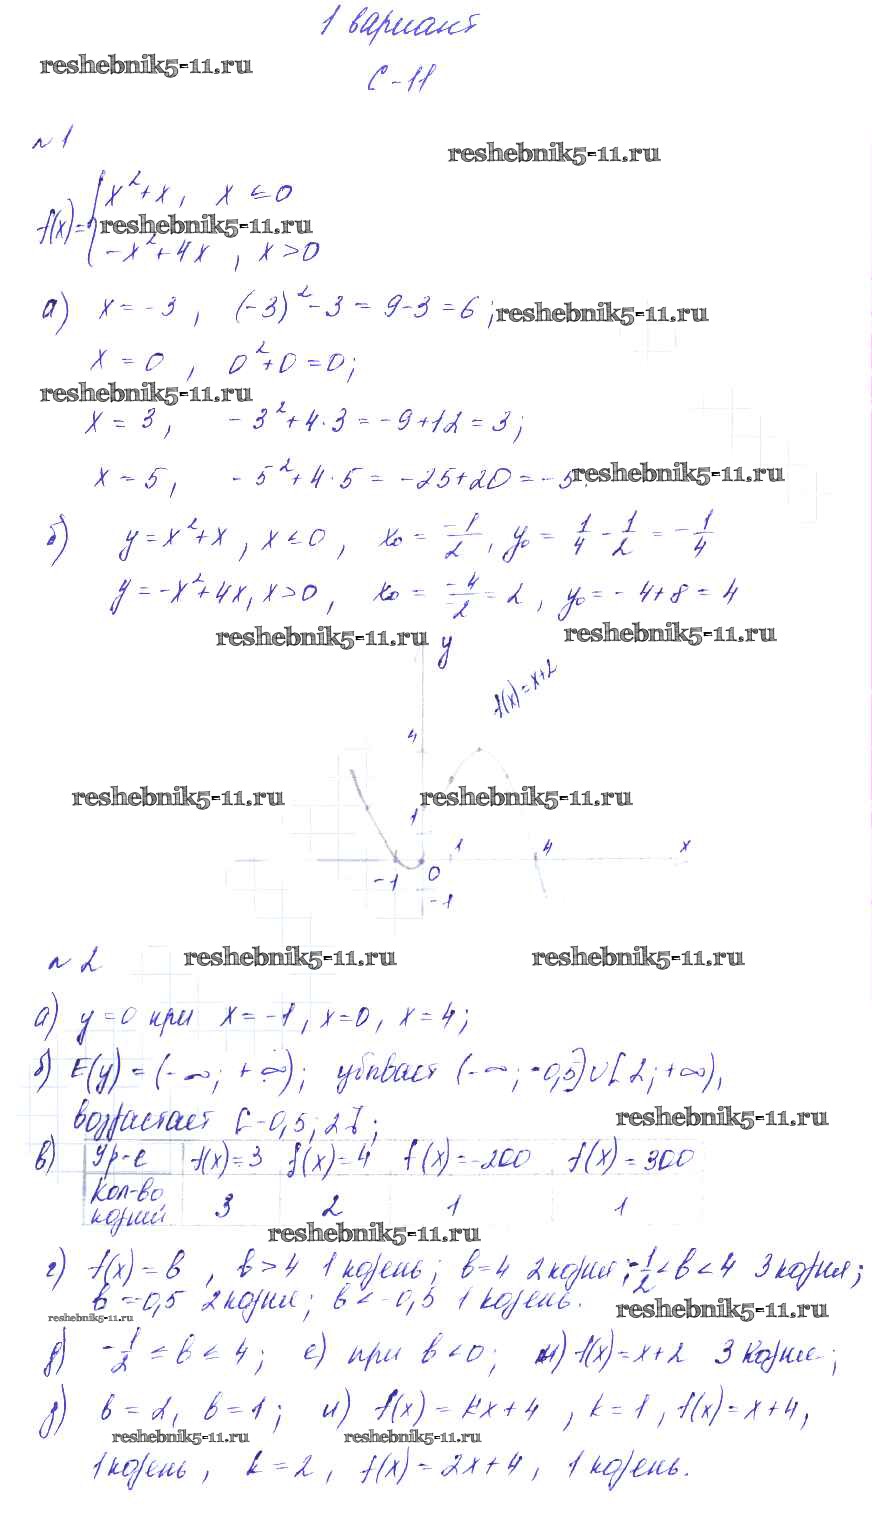 1 вариант
reshebnik5-11.ru
С-11
№1
reshebnik5-11.ru
x²+x, x ≤ 0
f(x)= {
reshebnik5-11.ru
-x²+4x, x>0
а) x=-3, (-3)²-3=9-3=6;
reshebnik5-11.ru
x=0, 0²+0=0;
reshebnik5-11.ru
x=3, -3²+4·3=-9+12=3;
x=5, -5²+4·5=-25+20=-5.
reshebnik5-11.ru
б) y=x²+x, x≤0, x₀ = -1/2, y₀ = 1/4 - 1/2 = -1/4
y=-x²+4x, x>0, x₀ = -4/-2 = 2, y₀ = -4+8=4
reshebnik5-11.ru
reshebnik5-11.ru
y
f(x)=x+2
4
reshebnik5-11.ru
reshebnik5-11.ru
1
1
4
x
-1
0
-1
№2
reshebnik5-11.ru
reshebnik5-11.ru
а) y=0 при x=-1, x=0, x=4;
б) E(y)=(-∞; +∞); убывает (-∞; -0,5]∪[2; +∞),
возрастает [-0,5; 2];
reshebnik5-11.ru
в) Ур-е f(x)=3 f(x)=4 f(x)=-200 f(x)=300
Кол-во
корний 3 2 1 1
reshebnik5-11.ru
г) f(x)=в, в>4 1 корень; в=4 2 корня; -1/2<в<4 3 корня;
в=-0,5 2 корня; в<-0,5 1 корень.
reshebnik5-11.ru
reshebnik5-11.ru
д) -1/2 ≤ в ≤ 4; е) при в<0; ж) f(x)=x+2 3 корня;
з) в=2, в=1; и) f(x)=kx+4, k=1, f(x)=x+4,
reshebnik5-11.ru
reshebnik5-11.ru
1 корень, k=2, f(x)=2x+4, 1 корень.